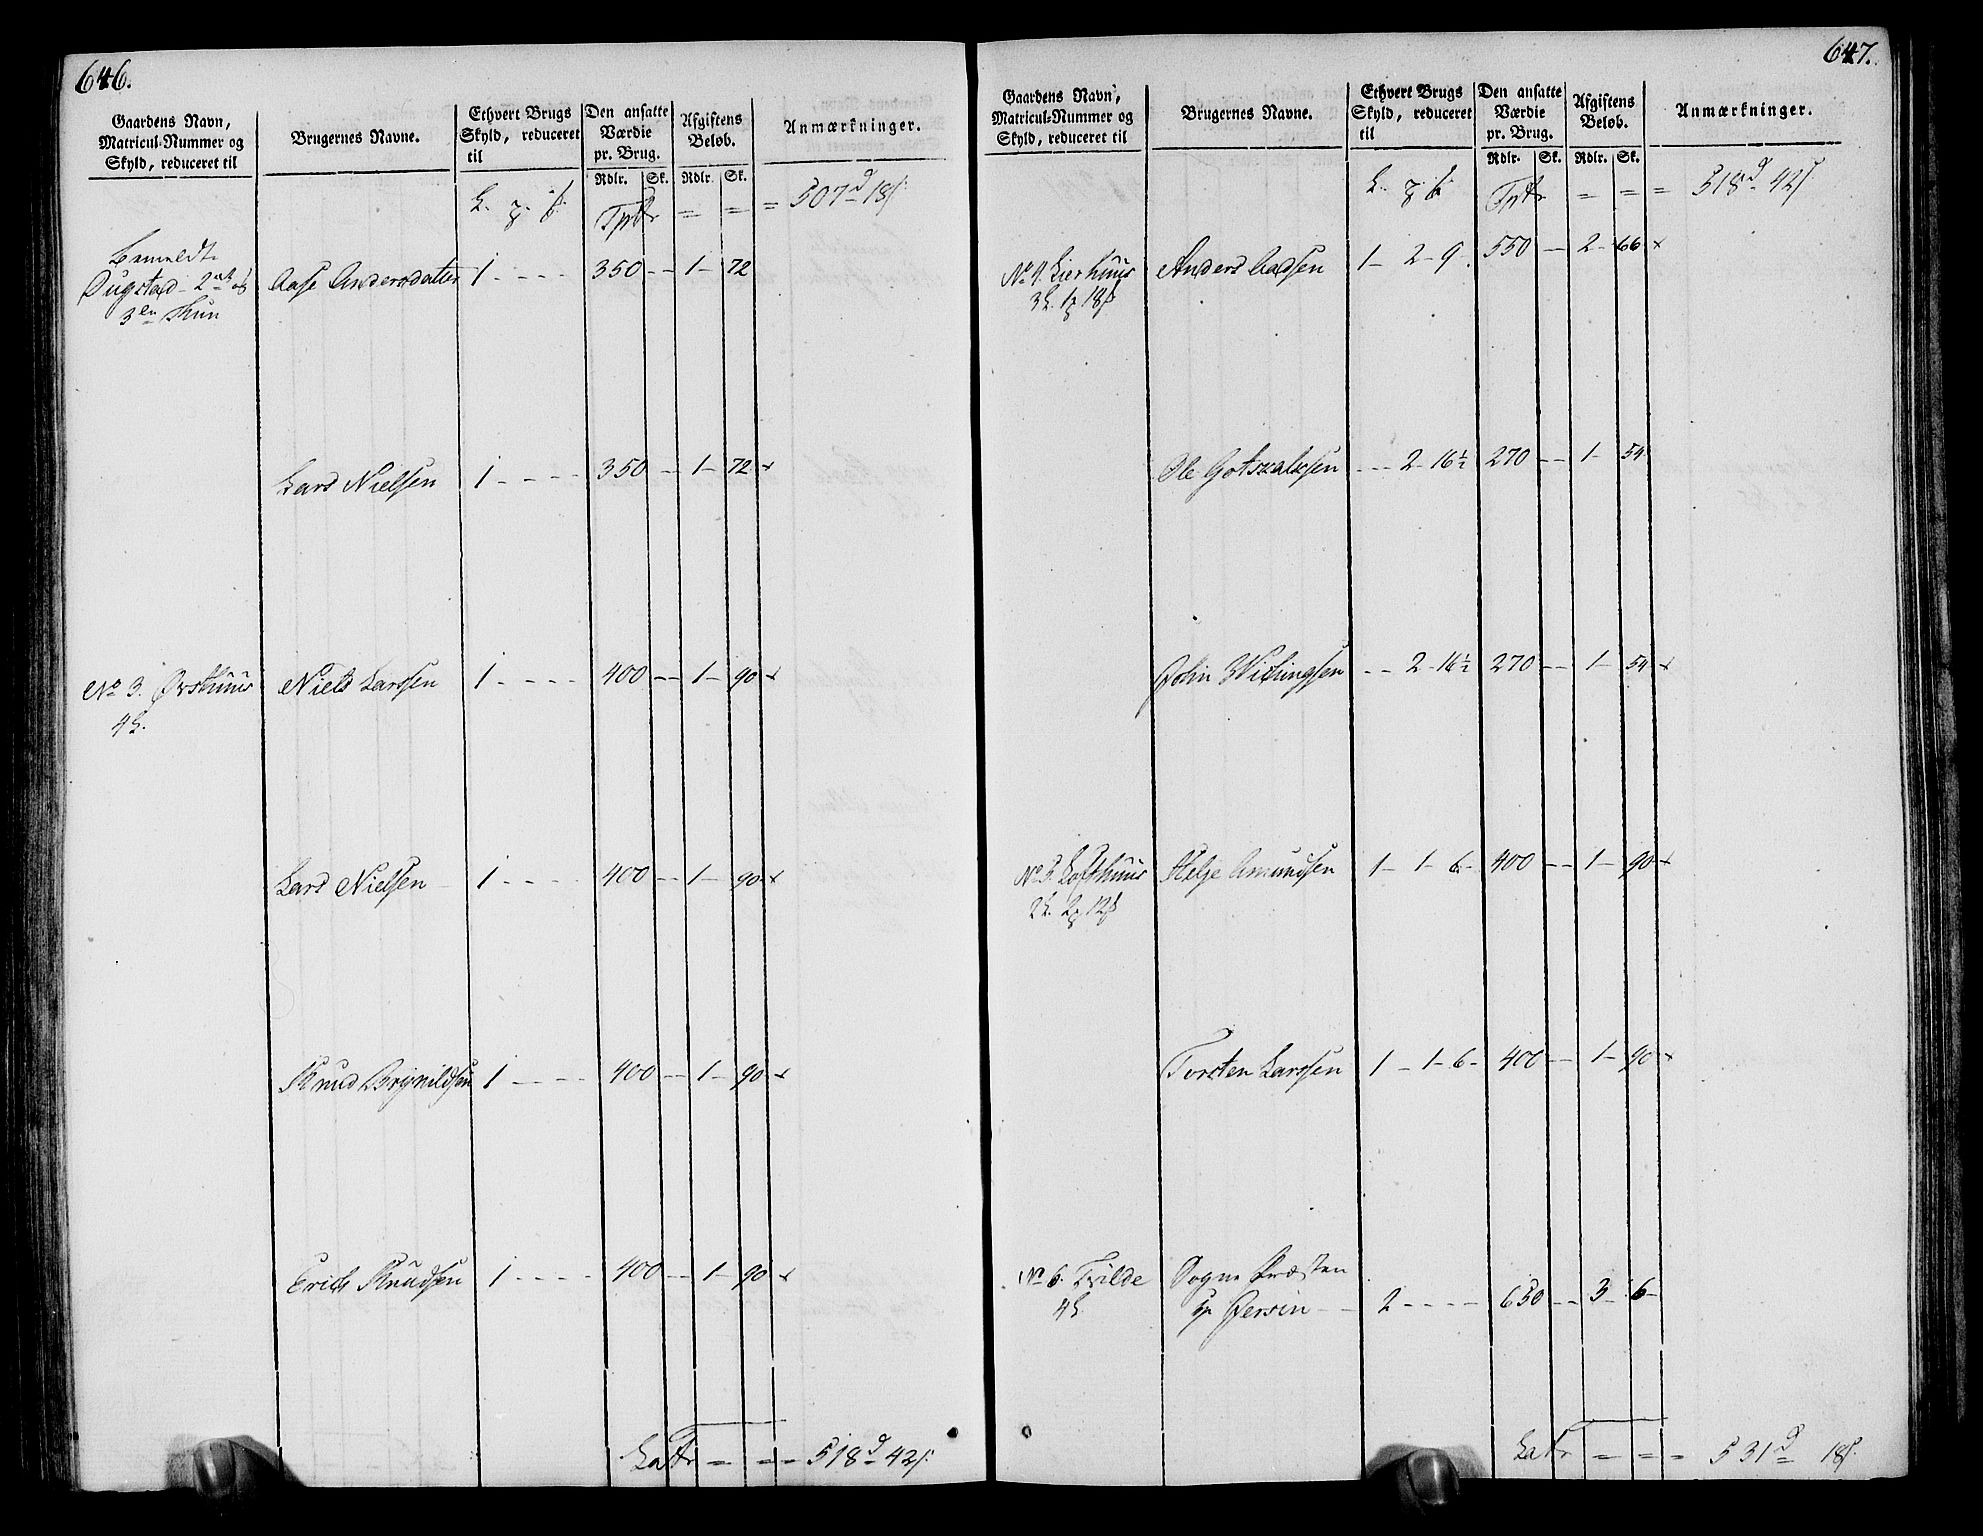 646.
Gaardens Navn,
Matricul-Nummer og
Skyld, reduceret til
Brugernes Navne.
Ethvert Brugs
Skyld, reduceret
til
Den ansatte
Værdie
pr. Brug.
Rdlr. Sk.
Afgiftens
Beløb.
Rdlr. Sk.
Anmærkninger.
Tptr = = = 507 d 18 s.
Bemeldte
Dugstad 2 af
3 en Huu
Aase Andersdatter 1 - - - - 350 -- 1 - 72
Lars Nielsen 1 - - - - 350 -- 1 - 72 x
No 3. Ørsthuus
4 L.
Niels Larssen 1 - - - - 400 -- 1 - 90 x
Lars Nielsen 1 - - - - 400 -- 1 - 90 x
Knud Brynildsen 1 - - - - 400 -- 1 - 90 x
Erich Knudsen 1 - - - - 400 -- 1 - 90 x
Latr = = = 518 d 42 s.
647.
Gaardens Navn,
Matricul-Nummer og
Skyld, reduceret til
Brugernes Navne.
Ethvert Brugs
Skyld, reduceret
til
Den ansatte
Værdie
pr. Brug.
Rdlr. Sk.
Afgiftens
Beløb.
Rdlr. Sk.
Anmærkninger.
Tptr = = = 518 d 42 s
No 4. Lierhuus
Anders Ladsen 1 - 2 - 9. 550 -- 2 - 66 x
Ole Gotskalksen - - - 2 - 16 ½ 270 -- 1 - 54
John Wichingsen - - 2 - 16 ½ 270 -- 1 - 54 x
No 5 Lofthuus
Helje Amundsen 1 - 1 - 6 - 400 -- 1 - 90 x
Torsten Larssen 1 - 1 - 6 - 400 -- 1 - 90 x
No 6. Tvilde
4 L.
Sogne Præsten
Hr Gersin - - 2 - - - - 650 -- 3 - 6 -
Latr = = = 531 d 18 s.